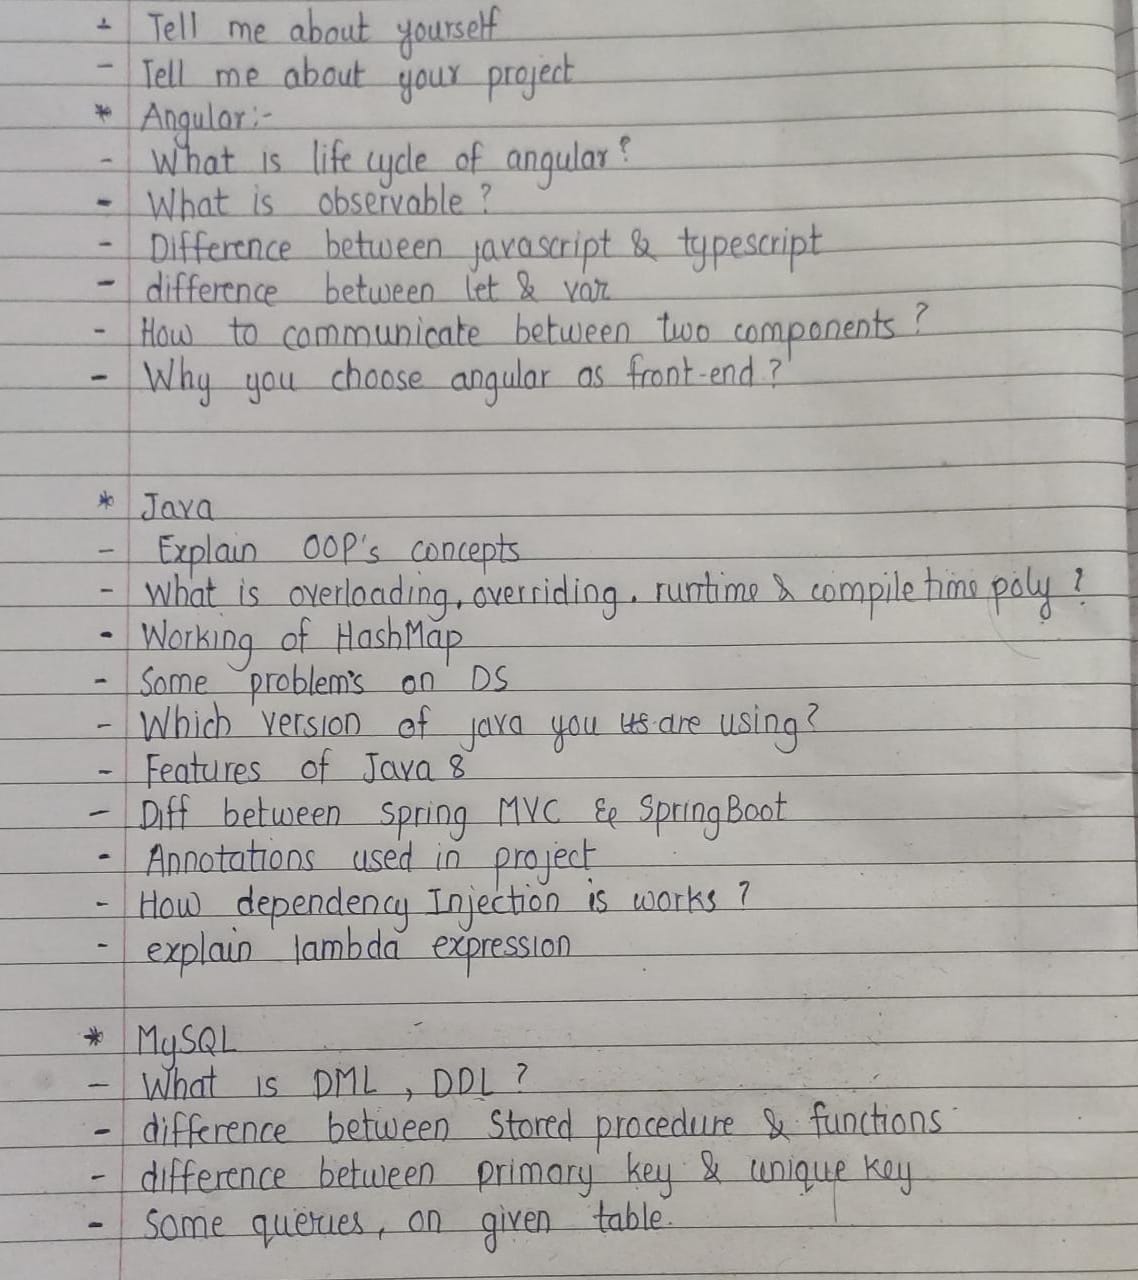 + Tell me about yourself
- Tell me about your project
* Angular:-
- What is life cycle of angular?
- What is observable?
- Difference between javascript & typescript
- difference between let & var
- How to communicate between two components?
- Why you choose angular as front-end?
* Java
- Explain OOP's concepts
- What is overloading, overriding, runtime & compile time poly?
- Working of HashMap
- Some problem's on DS
- Which version of java you are using?
- Features of Java 8
- Diff between Spring MVC & SpringBoot
- Annotations used in project
- How dependency Injection is works?
- explain lambda expression
* MySQL
- What is DML, DDL?
- difference between Stored procedure & functions
- difference between primary key & unique key
- Some queries, on given table.